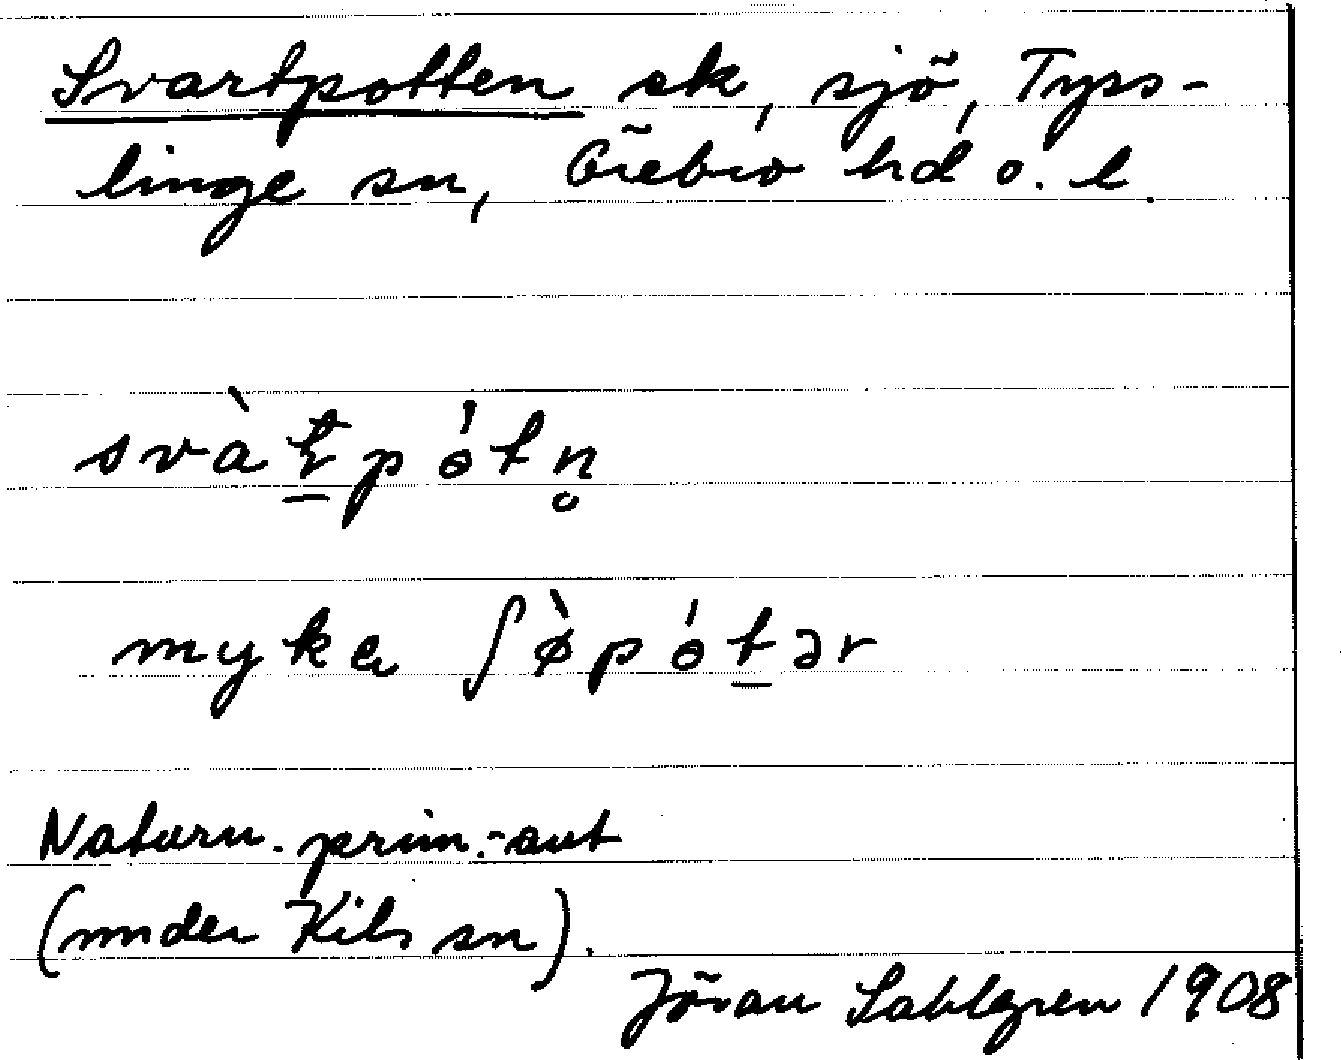 Svartpotten ek, sjö, Tyss-
linge sn, Örebro hd o. l.
svàt̠pótn̥
myka ʃø̀pót̠ər
Naturn. prim.-aut
(under Kils sn).
Jöran Sahlgren 1908